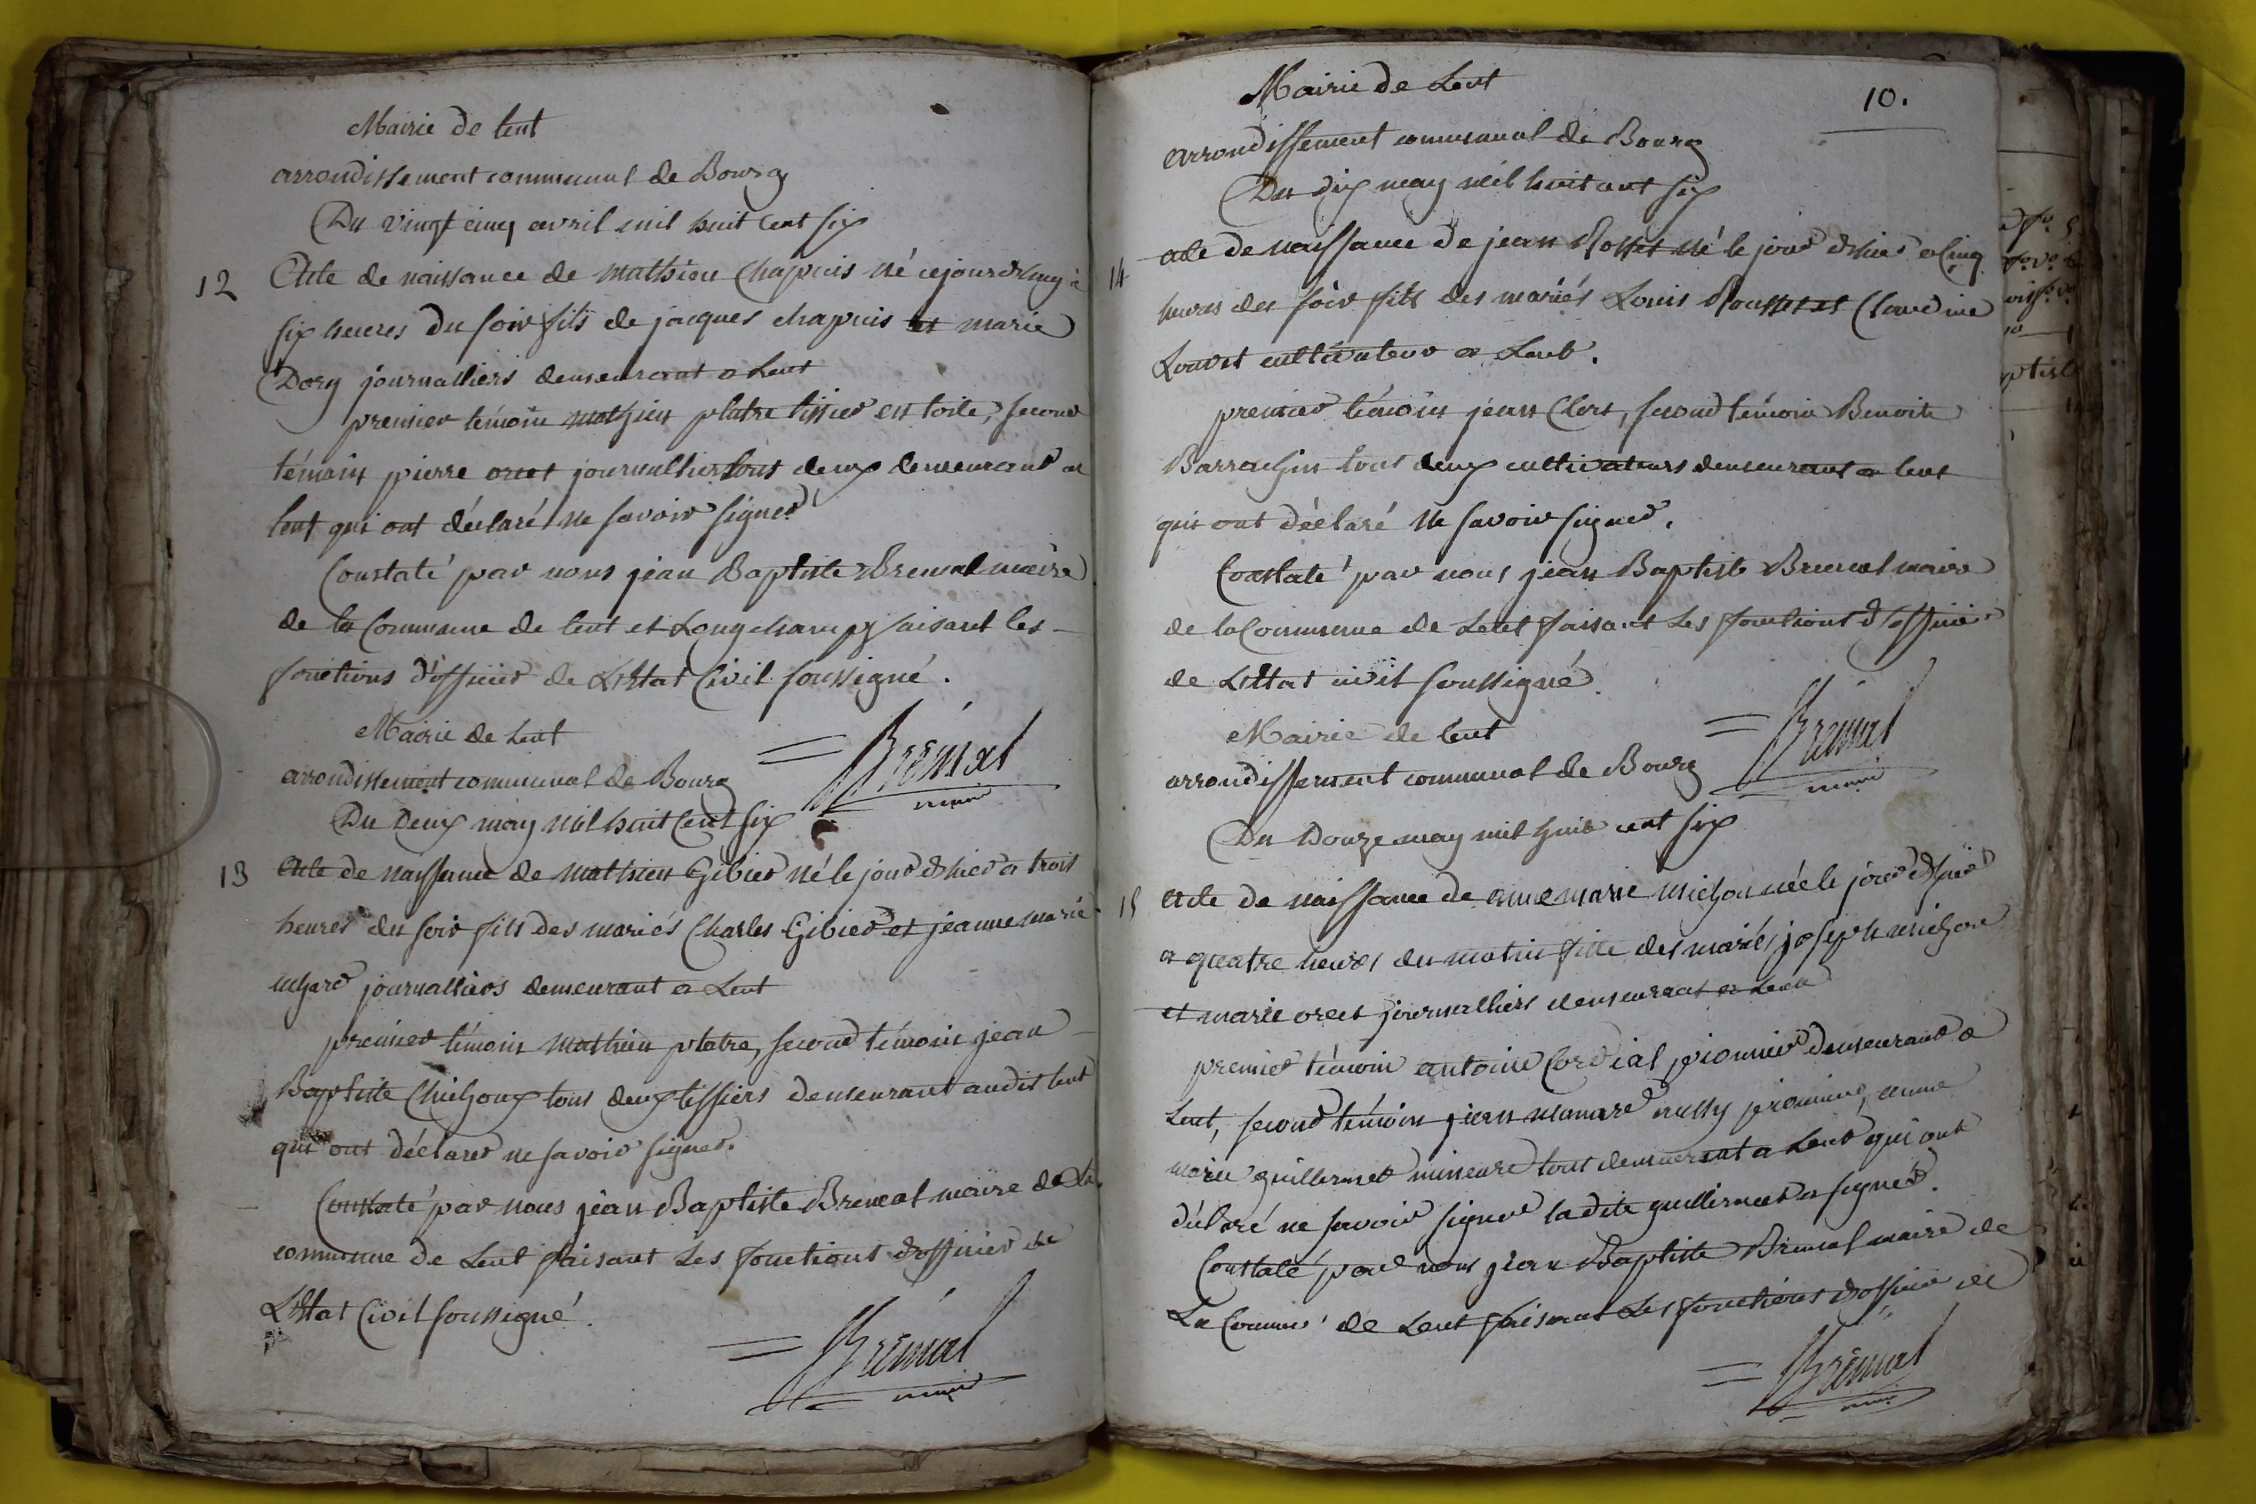 Mairie de Lent
arrondissement communal de Bourg
Du vingt cinq avril mil huit cent six
12 Acte de naissance de mathieu Chapuis né cejourdhuy à
six heures du soir fils de jacques chapuis et marie
Dory journalliers demeurant a Lent
premier témoin mathieu platre tissier en toile, second
témoin pierre orcet journallier tous deux demeurant a
lent qui ont déclaré ne savoir signer
Constaté par nous jean Baptiste Bremal maire
de la Commune de lent et Longchamp faisant les
fonctions d'officier de LEtat Civil soussigné.
Brémal
maire
Mairie de Lent
arrondissement communal de Bourg
Du Deux may mil huit Cent six
13 Acte de naissance de mathieu Gibier né le jour dhier a trois
heures du soir fils des mariés Charles Gibier et jeanne marie
journalliers demeurant a Lent
premier témoin mathieu platre, second témoin jean
Baptiste Chichoux tous deux tissiers demeurant audit lent
qui ont déclarer ne savoir signer.
Constaté par nous jean Baptiste Bremal maire de la
commune de Lent faisant Les fonctions dofficier de
LEtat Civil soussigné.
Brémal
maire
10.
Mairie de Lent
arrondissement communal de Bourg
Du dix may mil huit cent six
14 acte de naissance de jean Rosset né le jour dhier a Cinq
heures du soir fils des mariés Louis Rousset et Claudine
Louvet cultivateur a Lent.
premier témoin jean Clerc, second témoin Benoite
Barrachin tous deux cultivateurs demeurant a lent
qui ont déclaré ne savoir signer.
Constaté par nous jean Baptiste Bremal maire
de la Commune de Lent faisant Les fonctions d'officier
de LEtat civil soussigné.
Brémal
maire
Mairie de lent
arrondissement communal de Bourg
Du Douze may mil huit cent six
15 Acte de naissance de anne marie michon née le jour dhier
a quatre heures du matin fille des mariés joseph michon
et marie orcet journalliers demeurant a Lent
premier témoin antoine Cordial pionnier demeurant a
Lent, second témoin jean manare aussy pionnier, anne
marie guillermet mineure tous demeurant a Lent qui ont
déclaré ne savoir signer ladite guillermet a signer.
Constaté par nous jean Baptiste Bremal maire de
La Commune de Lent faisant Les fonctions dofficier de
Brémal
maire